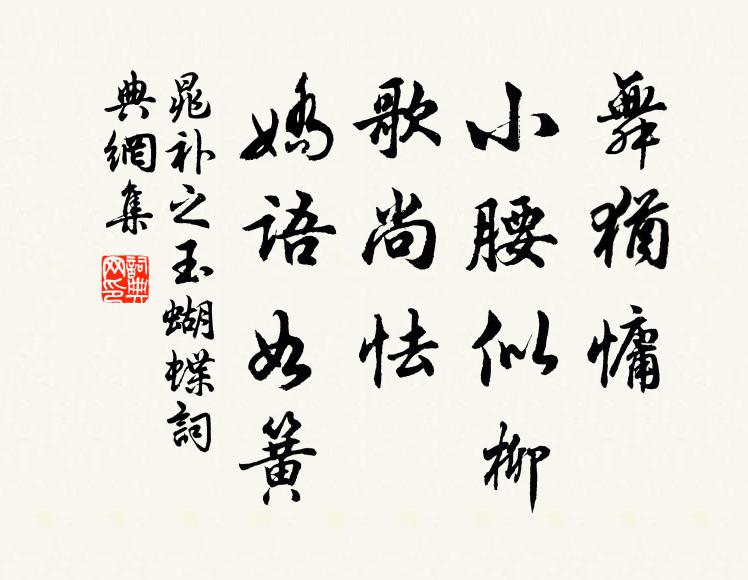 舞猶慵
小腰似柳
歌尚怯
嬌語如簧
晁补之玉蝴蝶詞
典網集
詞典網印